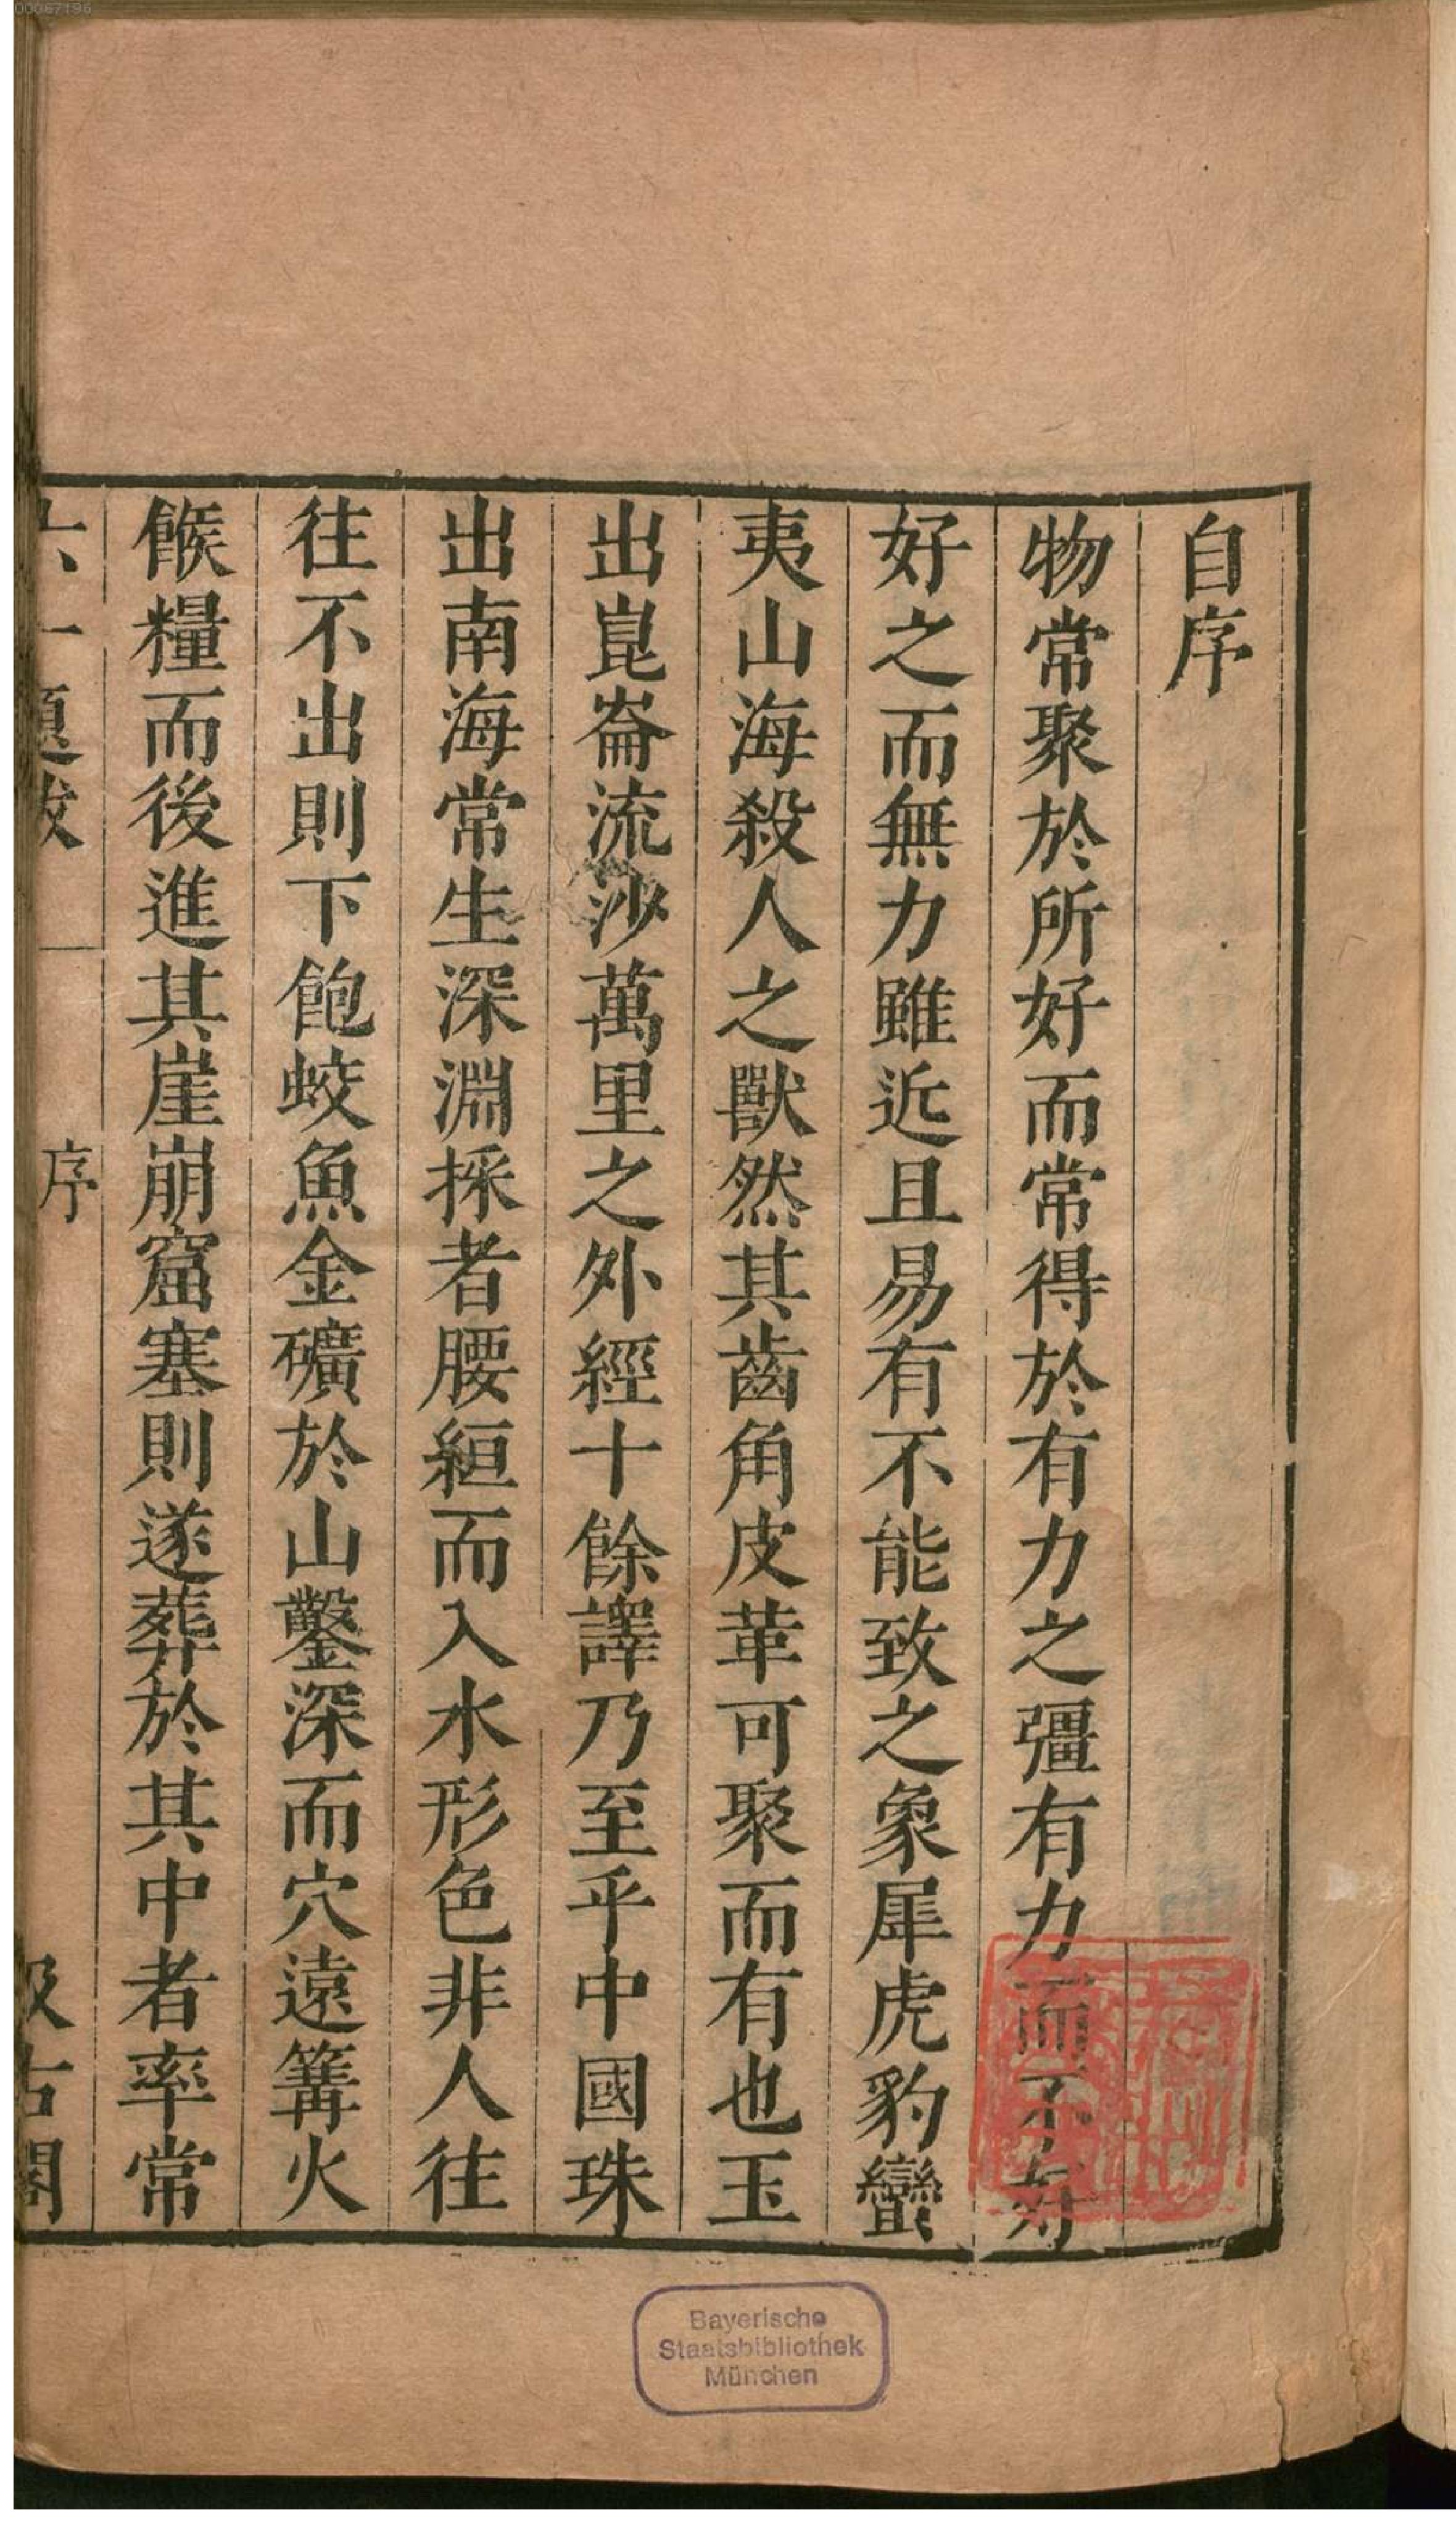 自序
物常聚於所好而常得於有力之彊有力而不好
好之而無力雖近且易有不能致之象犀虎豹蠻
夷山海殺人之獸然其齒角皮革可聚而有也玉
出崑崙流沙萬里之外經十餘譯乃至乎中國珠
出南海常生深淵採者腰絙而入水形色非人往
往不出則下飽蛟魚金礦於山鑿深而穴遠篝火
餱糧而後進其崖崩窟塞則遂葬於其中者率常
六一題跋 序 汲古閣
Bayerische
Staatsbibliothek
München
00067196